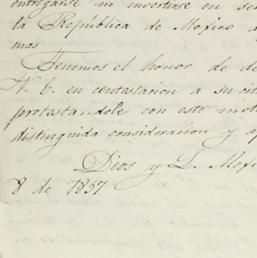 entregarse ni invertirse en se
la República de Mejico a
mas
Tenemos el honor de de
V. E. en contestacion a su
protestandole con este mot
distinguida consideracion y ap
Dios y L. Meji
8 de 1857.